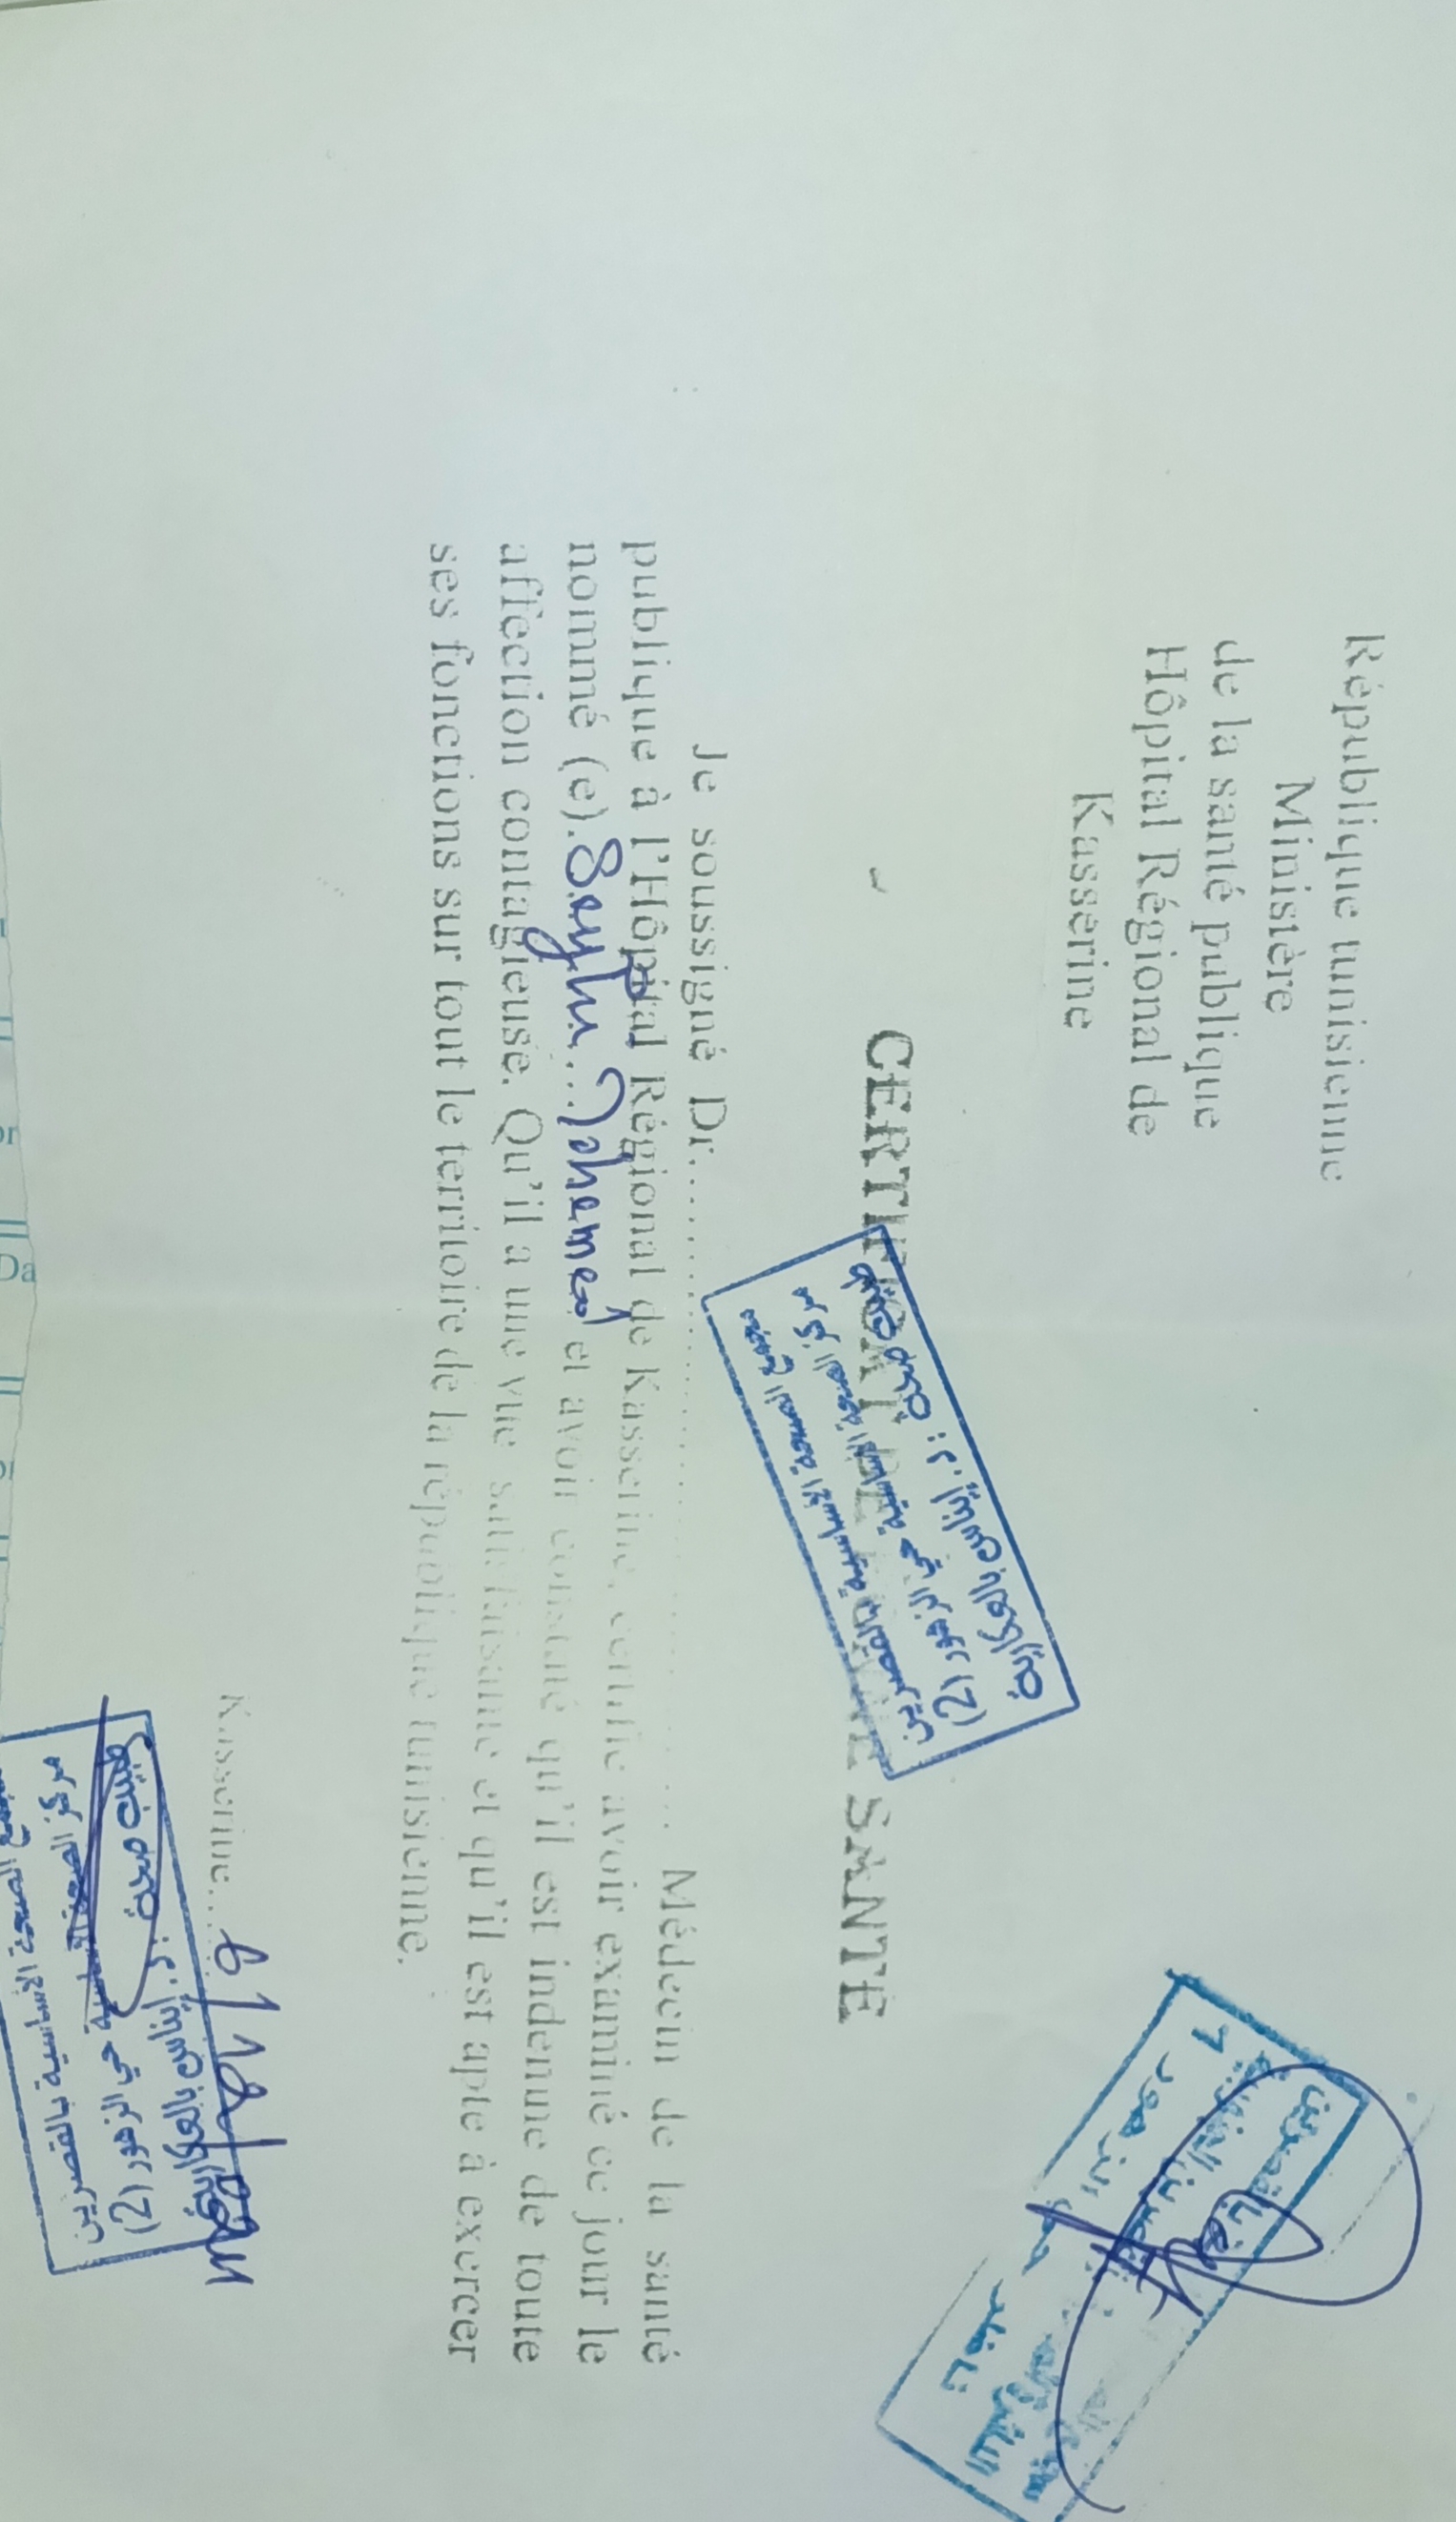 République tunisienne
Ministère
de la santé publique
Hôpital Régional de
Kasserine
CERTIFICAT DE BONNE SANTÉ
مجمع الصحة الأساسية بالقصرين
مركز الصحة الأساسية حي الزهور (2)
طبيب صحة : د. إيناس بالعكارية
Je soussigné Dr. Médecin de la santé
publique à l'Hôpital Régional de Kasserine, certifie avoir examiné ce jour le
nommé (e). et avoir constaté qu'il est indemne de toute
affection contagieuse. Qu'il a une vue satisfaisante et qu'il est apte à exercer
ses fonctions sur tout le territoire de la république tunisienne.
Kasserine
مجمع الصحة الأساسية بالقصرين
مركز الصحة الأساسية حي الزهور (2)
طبيب صحة : د. إيناس بالعكارية